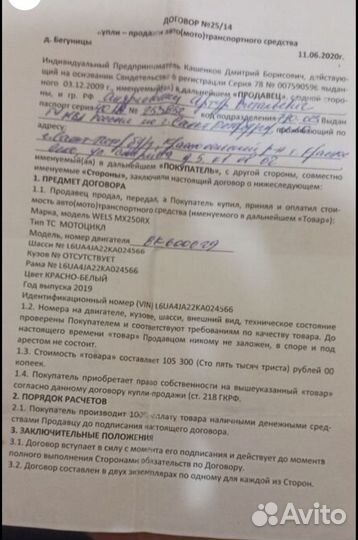 ДОГОВОР №25/14
купли – продажи авто(мото)транспортного средства
д. Бегуницы
11.06.2020г.
Индивидуальный Предприниматель Кашенков Дмитрий Борисович, действую-
щий на основании Свидетельства о регистрации Серия 78 № 007590596 выдан-
ного 03.12.2009 г. именуемый в дальнейшем «ПРОДАВЕЦ», с одной сторо-
ны, и гр. РФ
паспорт серия код подразделения выдан
проживающий по
адресу
именуемый в дальнейшем «ПОКУПАТЕЛЬ», с другой стороны, совместно
именуемые «Стороны», заключили настоящий договор о нижеследующем:
1. ПРЕДМЕТ ДОГОВОРА
1.1. Продавец продал, передал, а Покупатель купил, принял и оплатил стои-
мость авто(мото)транспортного средства (именуемого в дальнейшем «Товар»):
Марка, модель WELS MX250RX
Тип ТС МОТОЦИКЛ
Модель, номер двигателя
Шасси № L6UA4JA22KA024566
Кузов № ОТСУТСТВУЕТ
Рама № L6UA4JA22KA024566
Цвет КРАСНО-БЕЛЫЙ
Год выпуска 2019
Идентификационный номер (VIN) L6UA4JA22KA024566
1.2. Номера на двигателе, кузове, шасси, внешний вид, техническое состояние
проверены Покупателем и соответствуют требованиям по качеству товара. До
настоящего времени «товар» Продавцом никому не заложен, в споре и под
арестом не состоит.
1.3. Стоимость «товара» составляет 105 300 (Сто пять тысяч триста) рублей 00
копеек.
1.4. Покупатель приобретает право собственности на вышеуказанный «товар»
согласно данному договору купли-продажи (ст. 218 ГКРФ.
2. ПОРЯДОК РАСЧЕТОВ
2.1. Покупатель производит 100% оплату товара наличными денежными сред-
ствами Продавцу до подписания настоящего договора.
3. ЗАКЛЮЧИТЕЛЬНЫЕ ПОЛОЖЕНИЯ
3.1. Договор вступает в силу с момента его подписания и действует до момента
полного выполнения Сторонами обязательств по Договору.
3.2. Договор составлен в двух экземплярах по одному для каждой из Сторон.
Avito